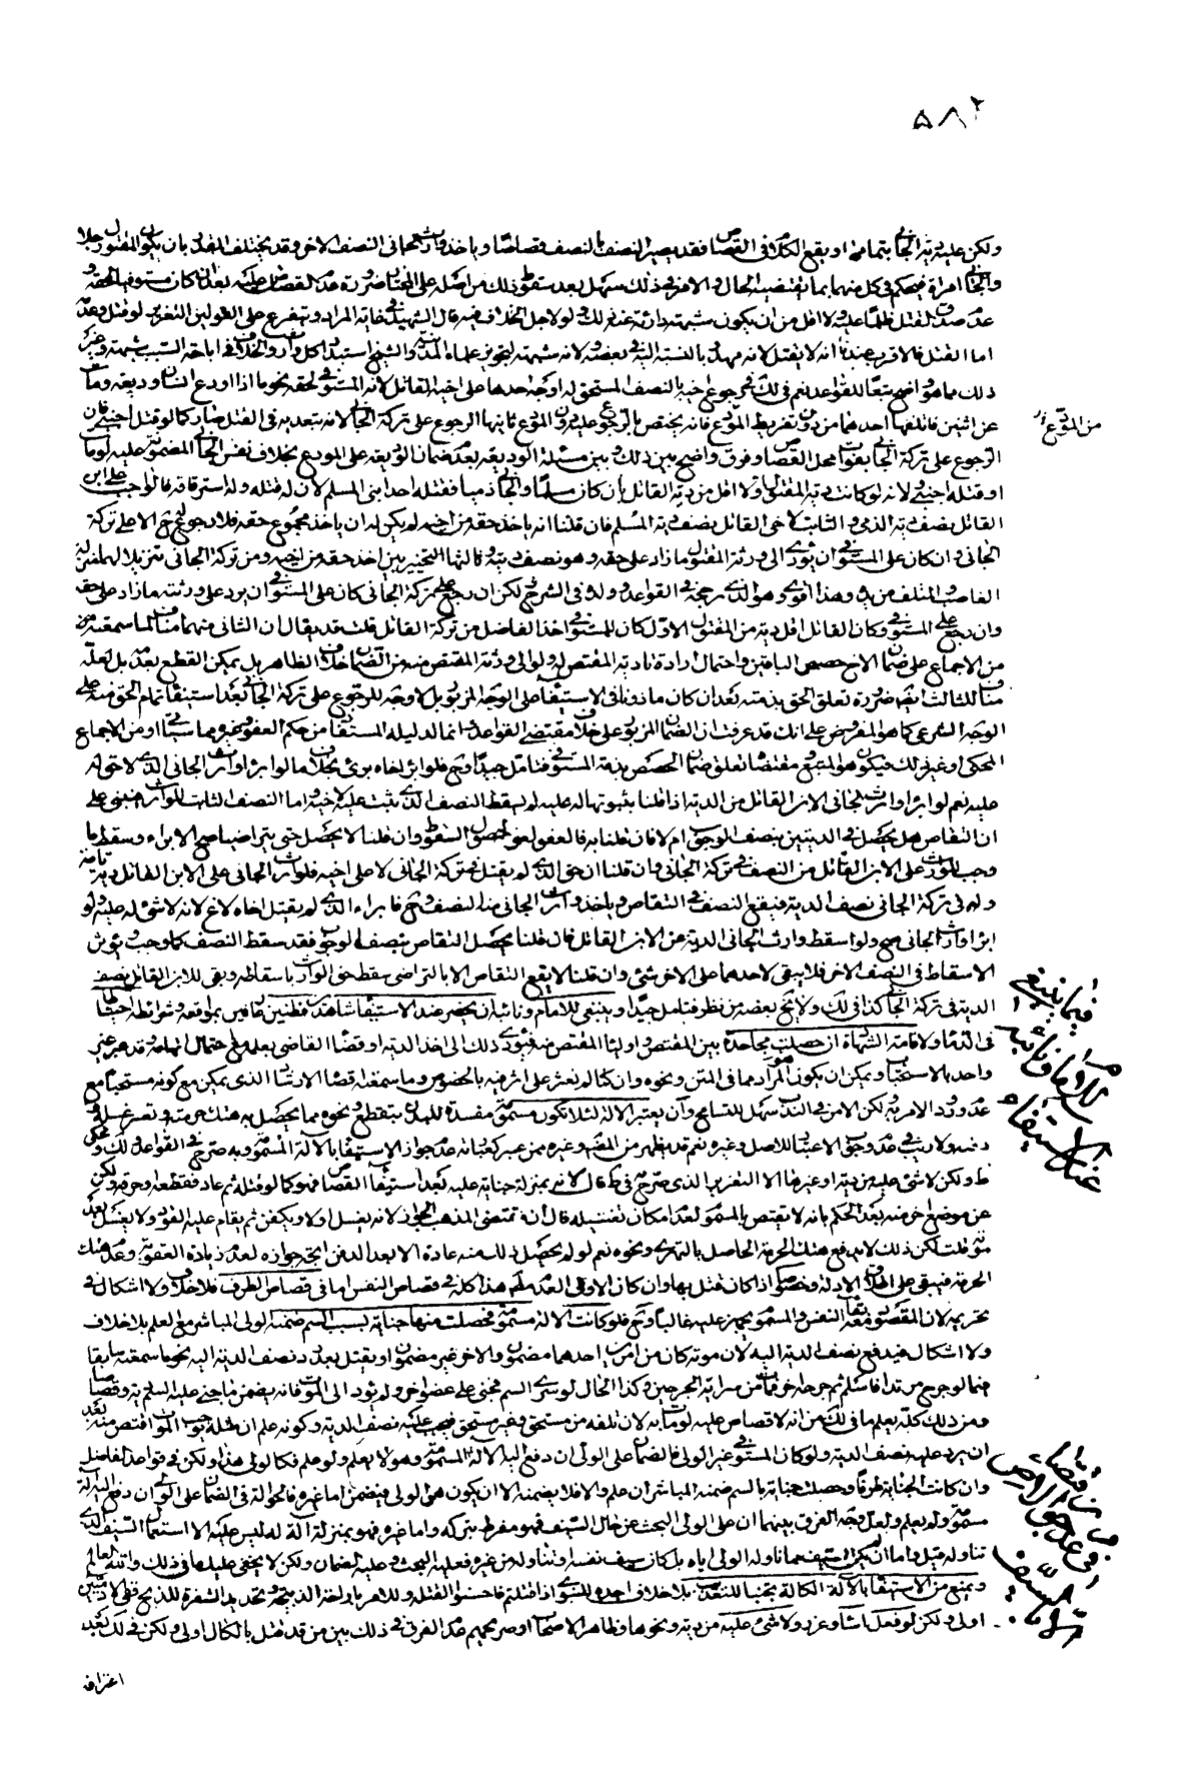 ٥٨٢
ولكن عليه دية الجاني بتمامها او يقع الكلام في القصاص فقد يصير النصف بالنصف قصاصا وياخذ وارث الجاني النصف الاخر وقد يختلف المقدار بان يكون المقتول رجلا
والجاني امراة فيحكم في كل منهما بما تقتضيه الحال والامر في ذلك سهل بعد سقوط ذلك من اصله على المختار ضرورة عدم القصاص عليه بعد ان كان مستوفيا لحقه
عدم صدق القتل ظلما عليه ولا اقل من ان يكون شبهة دارئة عنه ذلك ولو لاجل الخلاف فيه قال الشهيد في غاية المراد ويتفرع على القولين التغرير لو قتل وعدمه
اما القتل فالاقرب عندنا انه لا يقتل لانه مهدور بالنسبة اليه في بعضه ولانه شبهة لتجويز علماء المدينة والشيخ استبداد كل وارث والخلاف في اباحة السبب شبهة وغير
ذلك مما هو واضح تبعا للقواعد نعم في ذلك في رجوع اخيه بالنصف المستحق له اوجه احدها على اخيه القاتل لانه المستوفي لحقه نحو ما اذا اودع انسان وديعة ومات
عن اثنين فاتلفها احدهما من دون تفريط المودع فانه يختص بالرجوع عليه دون المودع ثانيها الرجوع على تركة الجاني لانه بتعديه في القتل صار كما لو قتل اجنبي فان
الرجوع على تركة الجاني بفوات محل القصاص وفرق واضح بين ذلك وبين مسئلة الوديعة بعدم ضمان الوديعة على المودع بخلاف نفس الجاني المضمونة عليه لو مات
او قتله اجنبي ولانه لو كانت دية المقتول اولا اقل من دية القاتل بان كان مسلما والجاني ذميا فقتله احد ابني المسلم لان له قتله وله استرقاقه فالواجب على ابن
القاتل نصف دية الذمي والثابت لاخي القاتل نصف دية المسلم فان قلنا انه ياخذ حقه من اخيه لم يكن له ان ياخذ مجموع حقه فلا رجوع ح الا على تركة
الجاني وان كان على المستوفي ان يؤدي الى ورثة المقتول ما زاد على حقه وهو نصف دية وثالثها التخيير بين اخذ حقه من اخيه ومن تركة الجاني تنزيلا لهما منزلة
الغاصب والمتلف من يده وهذا اقوى وهو الذي رجحه في القواعد وولده في الشرح لكن ان رجع على تركة الجاني كان على المستوفي ان يرد على ورثته ما زاد على حقه
وان رجع على المستوفي وكان القاتل اقل دية من المقتول الاول كان للمستوفي اخذ الفاضل من تركة القاتل قلت قد يقال ان الثاني منهما مناف لما سمعته
من الاجماع على ضمان الاخ حصص الباقين واحتمال ارادة تادية المقتص له ولو الى ورثة المقتص منه من الضمان خلاف الظاهر بل يمكن القطع بعدمه بل لعله
مناف للثالث ايضا ضرورة تعلق الحق بذمته بعد ان كان ماذونا في الاستيفاء على الوجه المزبور بل لا وجه للرجوع على تركة الجاني بعد استيفاء تمام الحق منه على
الوجه الشرعي كما هو المفروض على انك قد عرفت ان الضمان المزبور على خلاف مقتضى القواعد انما الدليل له المستفاد من حكم العفو وغيره مما سياتي او من الاجماع
المحكي او غير ذلك فيكون هو المتبع مقتضاه تعلق ضمان الحصص بذمة المستوفي فتامل جيدا وح فلو ابرا اخاه برئ بخلاف ما لو ابرا وارث الجاني الذي لا حق له
عليه نعم لو ابرا وارث الجاني الابن القاتل من الدية اذا قلنا بثبوتها له عليه لم يسقط النصف الذي يثبت عليه لاخيه واما النصف الثابت للوارث فيبنى على
ان التقاص هل يحصل في الديتين بنفس الوجوب ام لا فان قلنا به فالعفو لغو لحصول السقوط وان قلنا لا يحصل حتى يتراضيا صح الابراء وسقط ما
وجب للوارث على الابن القاتل من النصف في تركة الجاني وان قلنا ان حق الذي لم يقتل في تركة الجاني لا على اخيه فلوارث الجاني على الابن القاتل دية تامة
وله في تركة الجاني نصف الدية فيقع النصف في التقاص وياخذ وارث الجاني منه النصف وح فابراء الذي لم يقتل اخاه لاغ لانه لا شئ له عليه ولو
ابرا وارث الجاني صح ولو اسقط وارث الجاني الدية عن الابن القاتل فان قلنا يحصل التقاص بنفس الوجوب فقد سقط النصف كما وجب ويؤثر
الاسقاط في النصف الاخر فلا يبقى لاحدهما على الاخر شئ وان قلنا لا يقع التقاص الا بالتراضي سقط حق الوارث باسقاطه وبقي للابن القاتل نصف
الدية في تركة الجاني كذا في لك ولا يخ بعضه من نظر فتامل جيدا وينبغي للامام ونائبه ان يحضر عند الاستيفاء شاهدين فطنين عارفين بمواقعه وشرائطه احتياطا
في الدماء ولاقامة الشهادة ان حصلت مجاحدة بين المقتص واولياء المقتص منه فيؤدي ذلك الى اخذ الدية او قضاء القاضي بعلمه مع احتمال اتهامه وقد عبر غير
واحد بالاستحباب ويمكن ان يكون المراد مما في المتن ونحوه وان كنا لم نعثر على اثر فيه بالخصوص وما سمعته قضاء الارشاد الذي يمكن مع كونه مستحبا مع
عدم ورود الامر به لكن الامر في الندب سهل للتسامح وان يعتبر الالة لئلا تكون مسمومة مفسدة للبدن بتقطع ونحوه مما يحصل به هتك حرمته وتعسر غسله
دفنه ولا ريب في عدم وجوب الاعتبار للاصل وغيره نعم قد يظهر من المصنف وغيره ممن عبر كعبارته عدم جواز الاستيفاء بالالة المسمومة وبه صرح في القواعد ولك ومحكي
ط ولكن لا شئ عليه من دية او غيرها الا التغرير الذي صرح به في ط قال لانه بمنزلة جناية عليه بعد استيفاء القصاص فهو كما لو قتله ثم عاد فقطعه وحرقه ولكن
عن موضع اخر منه بعد الحكم بانه لا يقتص بالمسموم لعدم امكان تغسيله قال انه مقتضى المذهب الجواز لانه يغسل اولا ويكفن ثم يقام عليه القود ولا يغسل بعد
موته قلت لكن ذلك لا يدفع هتك الحرمة الحاصل بالتهري ونحوه نعم لو لم يحصل ذلك منه عادة الا بعد الدفن اتجه جوازه لعدم زيادة العقوبة وعدم هتك
الحرمة فيبقى على اطلاق الادلة وخصوصا اذا كان قتل بها وان كان الاولى العدم هذا كله في قصاص النفس اما في قصاص الطرف فلا خلاف ولا اشكال في
تحريمه لان المقصود معه بقاء النفس والمسموم يجهز عليه غالبا وح فلو كانت الالة مسمومة فحصلت منها جناية بسبب السم ضمنه الولي المباشر مع العلم بلا خلاف
ولا اشكال فيدفع نصف الدية اليه لان موته كان من امرين احدهما مضمون والاخر غير مضمون او يقتل بعد رد نصف الدية اليه نحو ما سمعته سابقا
فيما لو جرح مرتدا فاسلم ثم جرحه اخر فمات من سراية الجرحين وكذا الحال لو سرى السم فجنى على عضو اخر ولم يؤد الى الموت فانه يضمن ما جنى عليه السم دية وقصاصا
ومن ذلك كله يعلم ما في لك من انه لا قصاص عليه لو مات به لان تلفه من مستحق وغير مستحق فيجب عليه نصف الدية وكونه علم ان مثله يوجب الموت اقتص منه بعد
ان يرد عليه نصف الدية ولو كان المستوفي غير الولي فالضمان على الولي ان دفع اليه الالة المسمومة وهو لا يعلم ولو علم فكالولي هذا ولكن في قواعد الفاضل
وان كانت الجناية طرفا وحصلت جناية بالسم ضمنه المباشر ان علم والا فلا يضمنه الا ان يكون هو الولي فيضمن اما غيره فالحوالة في الضمان على الولي ان دفع اليه الة
مسمومة ولم يعلم ولعل وجه الفرق بينهما ان على الولي البحث عن حال السيف فهو مفرط بتركه واما غيره فهو بمنزلة الة له ليس عليه الا استعمال السيف الذي
تناوله قيل واما ان لم يكن السيف مما ناوله الولي اياه بل كان سيف نفسه او تناوله من غيره فعليه البحث وعليه الضمان ولكن لا يخفى عليك ما في ذلك والله العالم
ويمنع من الاستيفاء بالالة الكالة تجنبا للتعذيب بلا خلاف اجده للنبوي اذا قتلتم فاحسنوا القتلة وللامر باراحة الذبيحة وتحديد الشفرة للذبح ففي الادميين
اولى ولكن لو فعل اساء وعزر ولا شئ عليه من دية ونحوها وظاهر الاصحاب او صريحهم عدم الفرق في ذلك بين من قد قتل بالكال اولى ولكن في لك بعد
اعترافه
من المودع
فيما ينبغي
للامام ونائبه
عند الاستيفاء
في عدم جواز